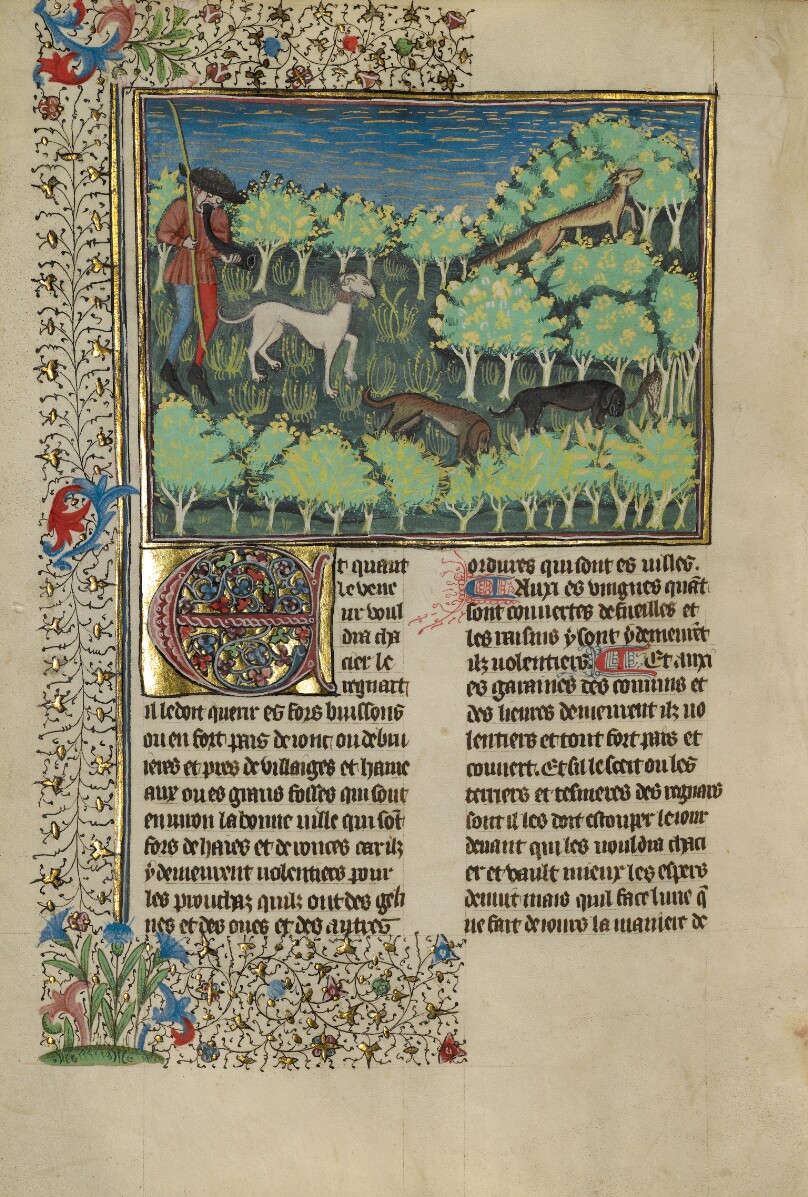 Et quant
le vene
ur voul
dra cha
cier le
regnart
il le doit querir es fors buissons
ou en fort pais de ionc ou de bui
ieres et pres de villaiges et hame
aux ou es grans fosses qui sont
enuiron la bonne uille qui sōt
fors de haies et de ronces car ilz
y demeurent uolentiers pour
les prouchaz quilz ont des geli
nes et des oues et des autres
ordures qui sont es uilles.
Aux es vingnes quāt
sont couuertes de fueilles et
les raisins y sont y demeurēt
ilz uolentiers. Et aux
es garannes des connins et
des lieures demeurent ilz uo
lentiers et tout fort pais et
couuert. Et sil scet ou les
terriers et tesnieres des regnars
sont il les doit estouper le iour
deuant quil les vouldra chaci
er et vault mieux les espers
de nuit mais quil face lune q̄
ne fait de iours la maniere de